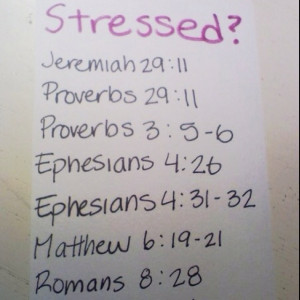 Stressed?
Jeremiah 29:11
Proverbs 29:11
Proverbs 3:5-6
Ephesians 4:26
Ephesians 4:31-32
Matthew 6:19-21
Romans 8:28